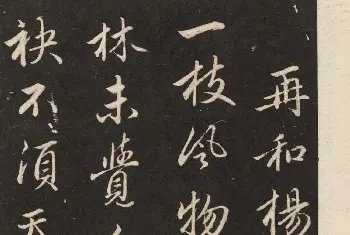 再和楊
一枝風物
林未覺
袂不須天